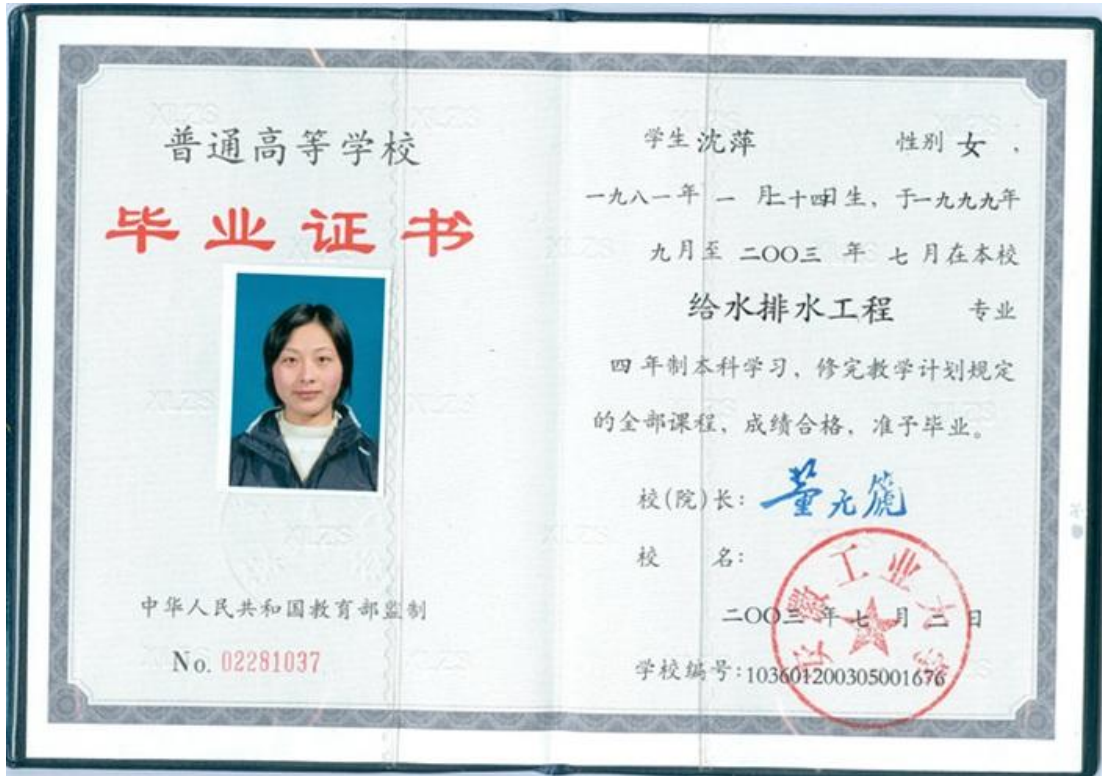 普通高等学校
毕业证书
中华人民共和国教育部监制
No. 02281037
学生 沈萍 性别 女，
一九八一年 一 月二十四日生、于一九九九年
九月至 二〇〇三 年 七 月在本校
给水排水工程 专业
四 年制本科学习、修完教学计划规定
的全部课程、成绩合格、准予毕业。
校(院)长：董元篪
校 名：
安徽工业大学
二〇〇三 年 七 月 三 日
学校编号：103601200305001676
XLZS